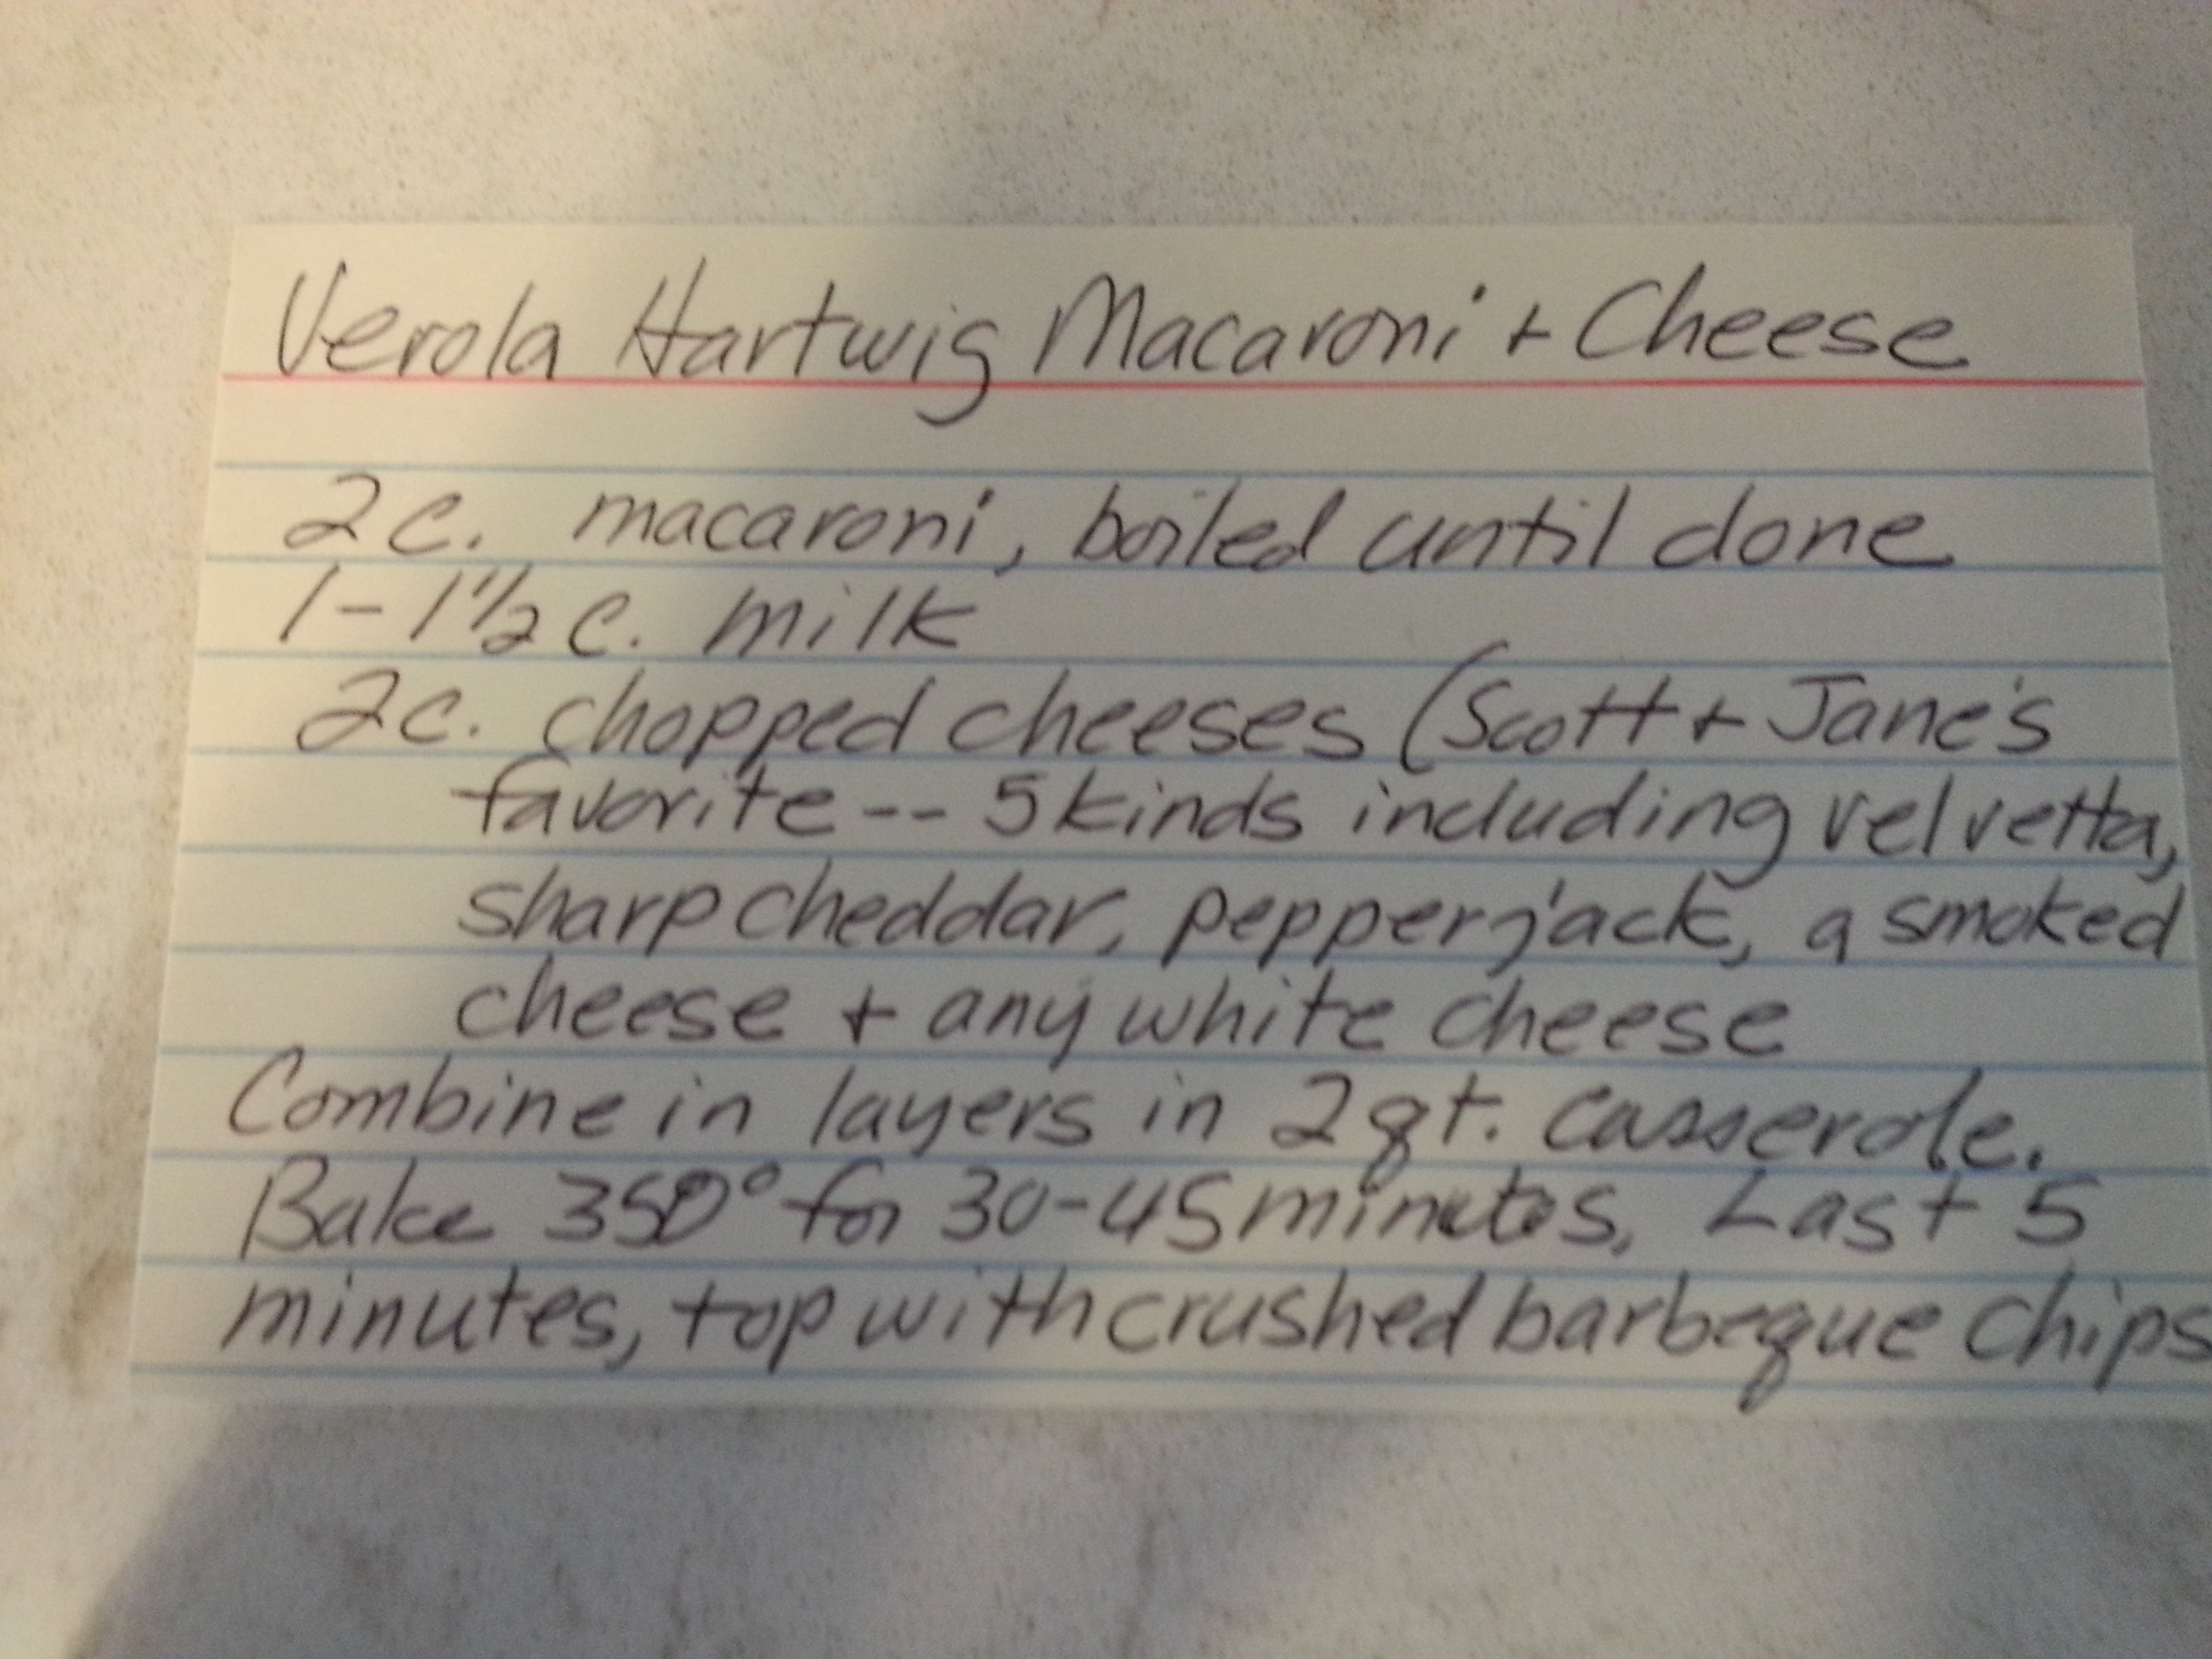 Verola Hartwig Macaroni + Cheese
2 c. macaroni, boiled until done
1-1 1/2 c. milk
2c. chopped cheeses (Scott + Jane's
favorite -- 5 kinds including velvetta,
sharp cheddar, pepperjack, a smoked
cheese + any white cheese
Combine in layers in 2 qt. casserole.
Bake 350° for 30-45 minutes. Last 5
minutes, top with crushed barbeque chips